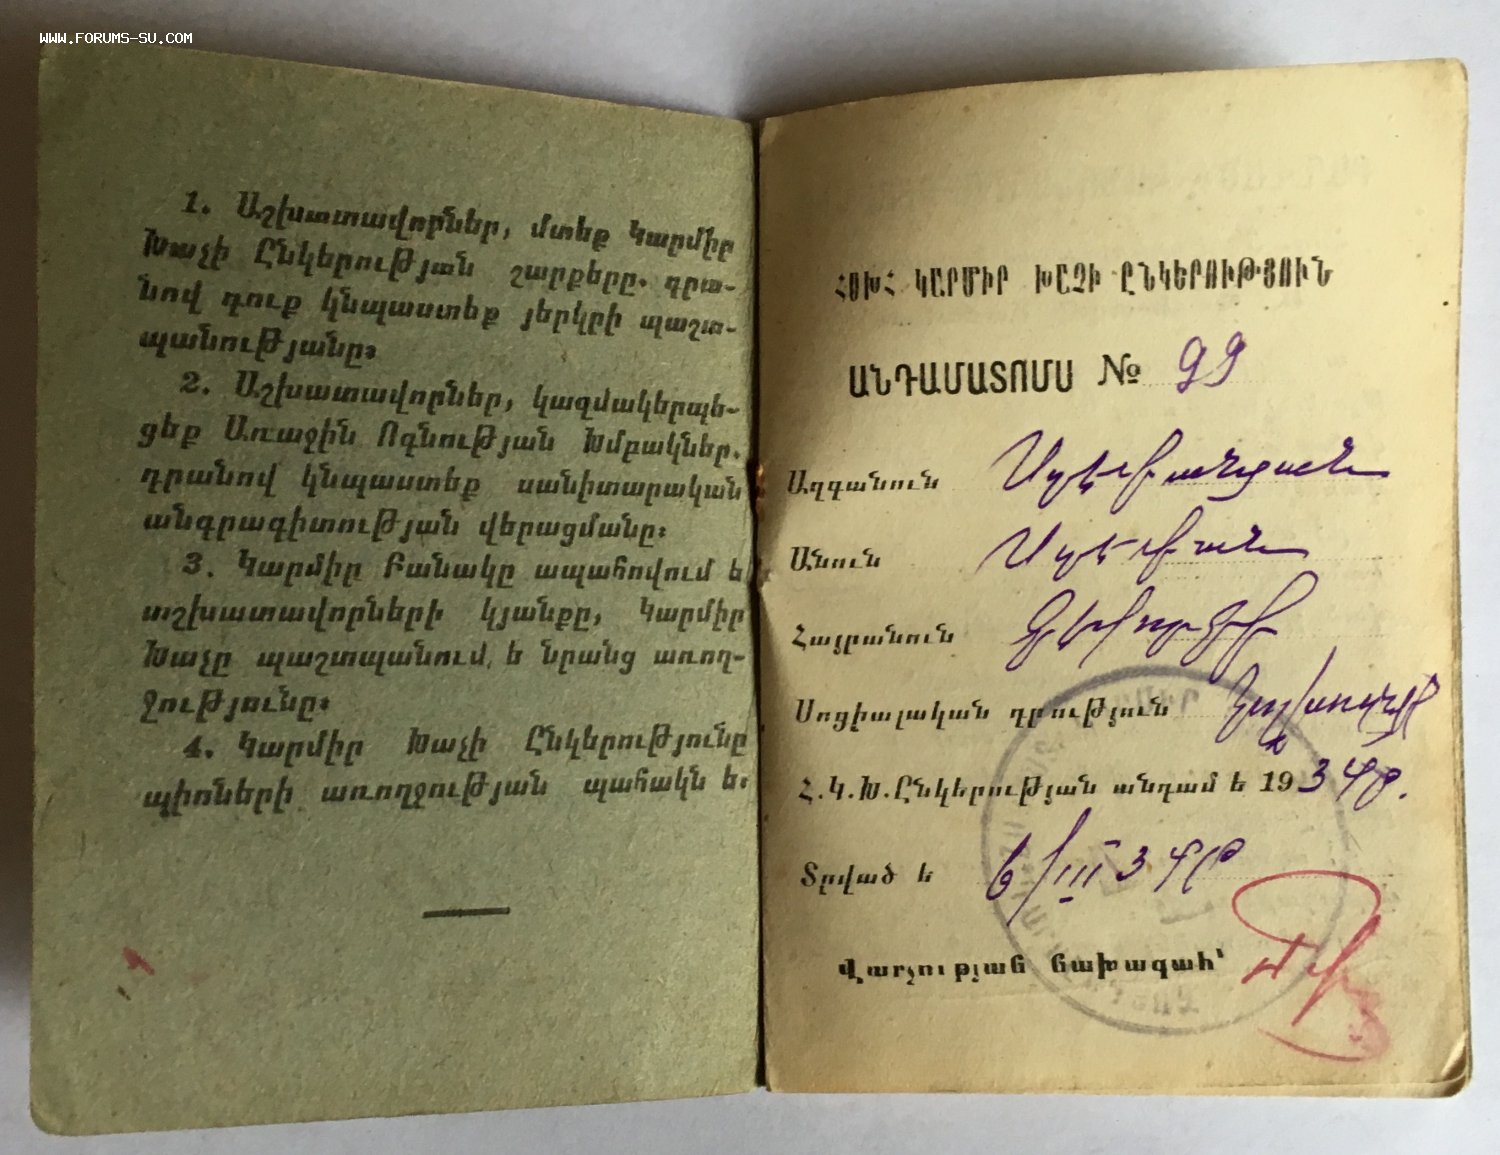 WWW.FORUMS-SU.COM
1. Աշխատավորներ, մտեք Կարմիր
Խաչի Ընկերության շարքերը. դրա-
նով դուք կնպաստեք յերկրի պաշտ-
պանությանը։
2. Աշխատավորներ, կազմակերպե-
ցեք Առաջին Ոգնության Խմբակներ.
դրանով կնպաստեք սանիտարական
անգրագիտության վերացմանը։
3. Կարմիր Բանակը ապահովում ե
աշխատավորների կյանքը, Կարմիր
Խաչը պաշտպանում ե նրանց առող-
ջությունը։
4. Կարմիր Խաչի Ընկերությունը
պիոների առողջության պահակն ե.
ՀՍԽՀ ԿԱՐՄԻՐ ԽԱՉԻ ԸՆԿԵՐՈՒԹՅՈՒՆ
ԱՆԴԱՄԱՏՈՄՍ № 99
Ազգանուն Ստեփանյան
Անուն Ստեփան
Հայրանուն Գևորգի
Սոցիալական դրություն
Հ.Կ.Խ.Ընկերության անդամ ե 1934թ.
Տրված ե 6/III 34թ
Վարչության նախագահ՝